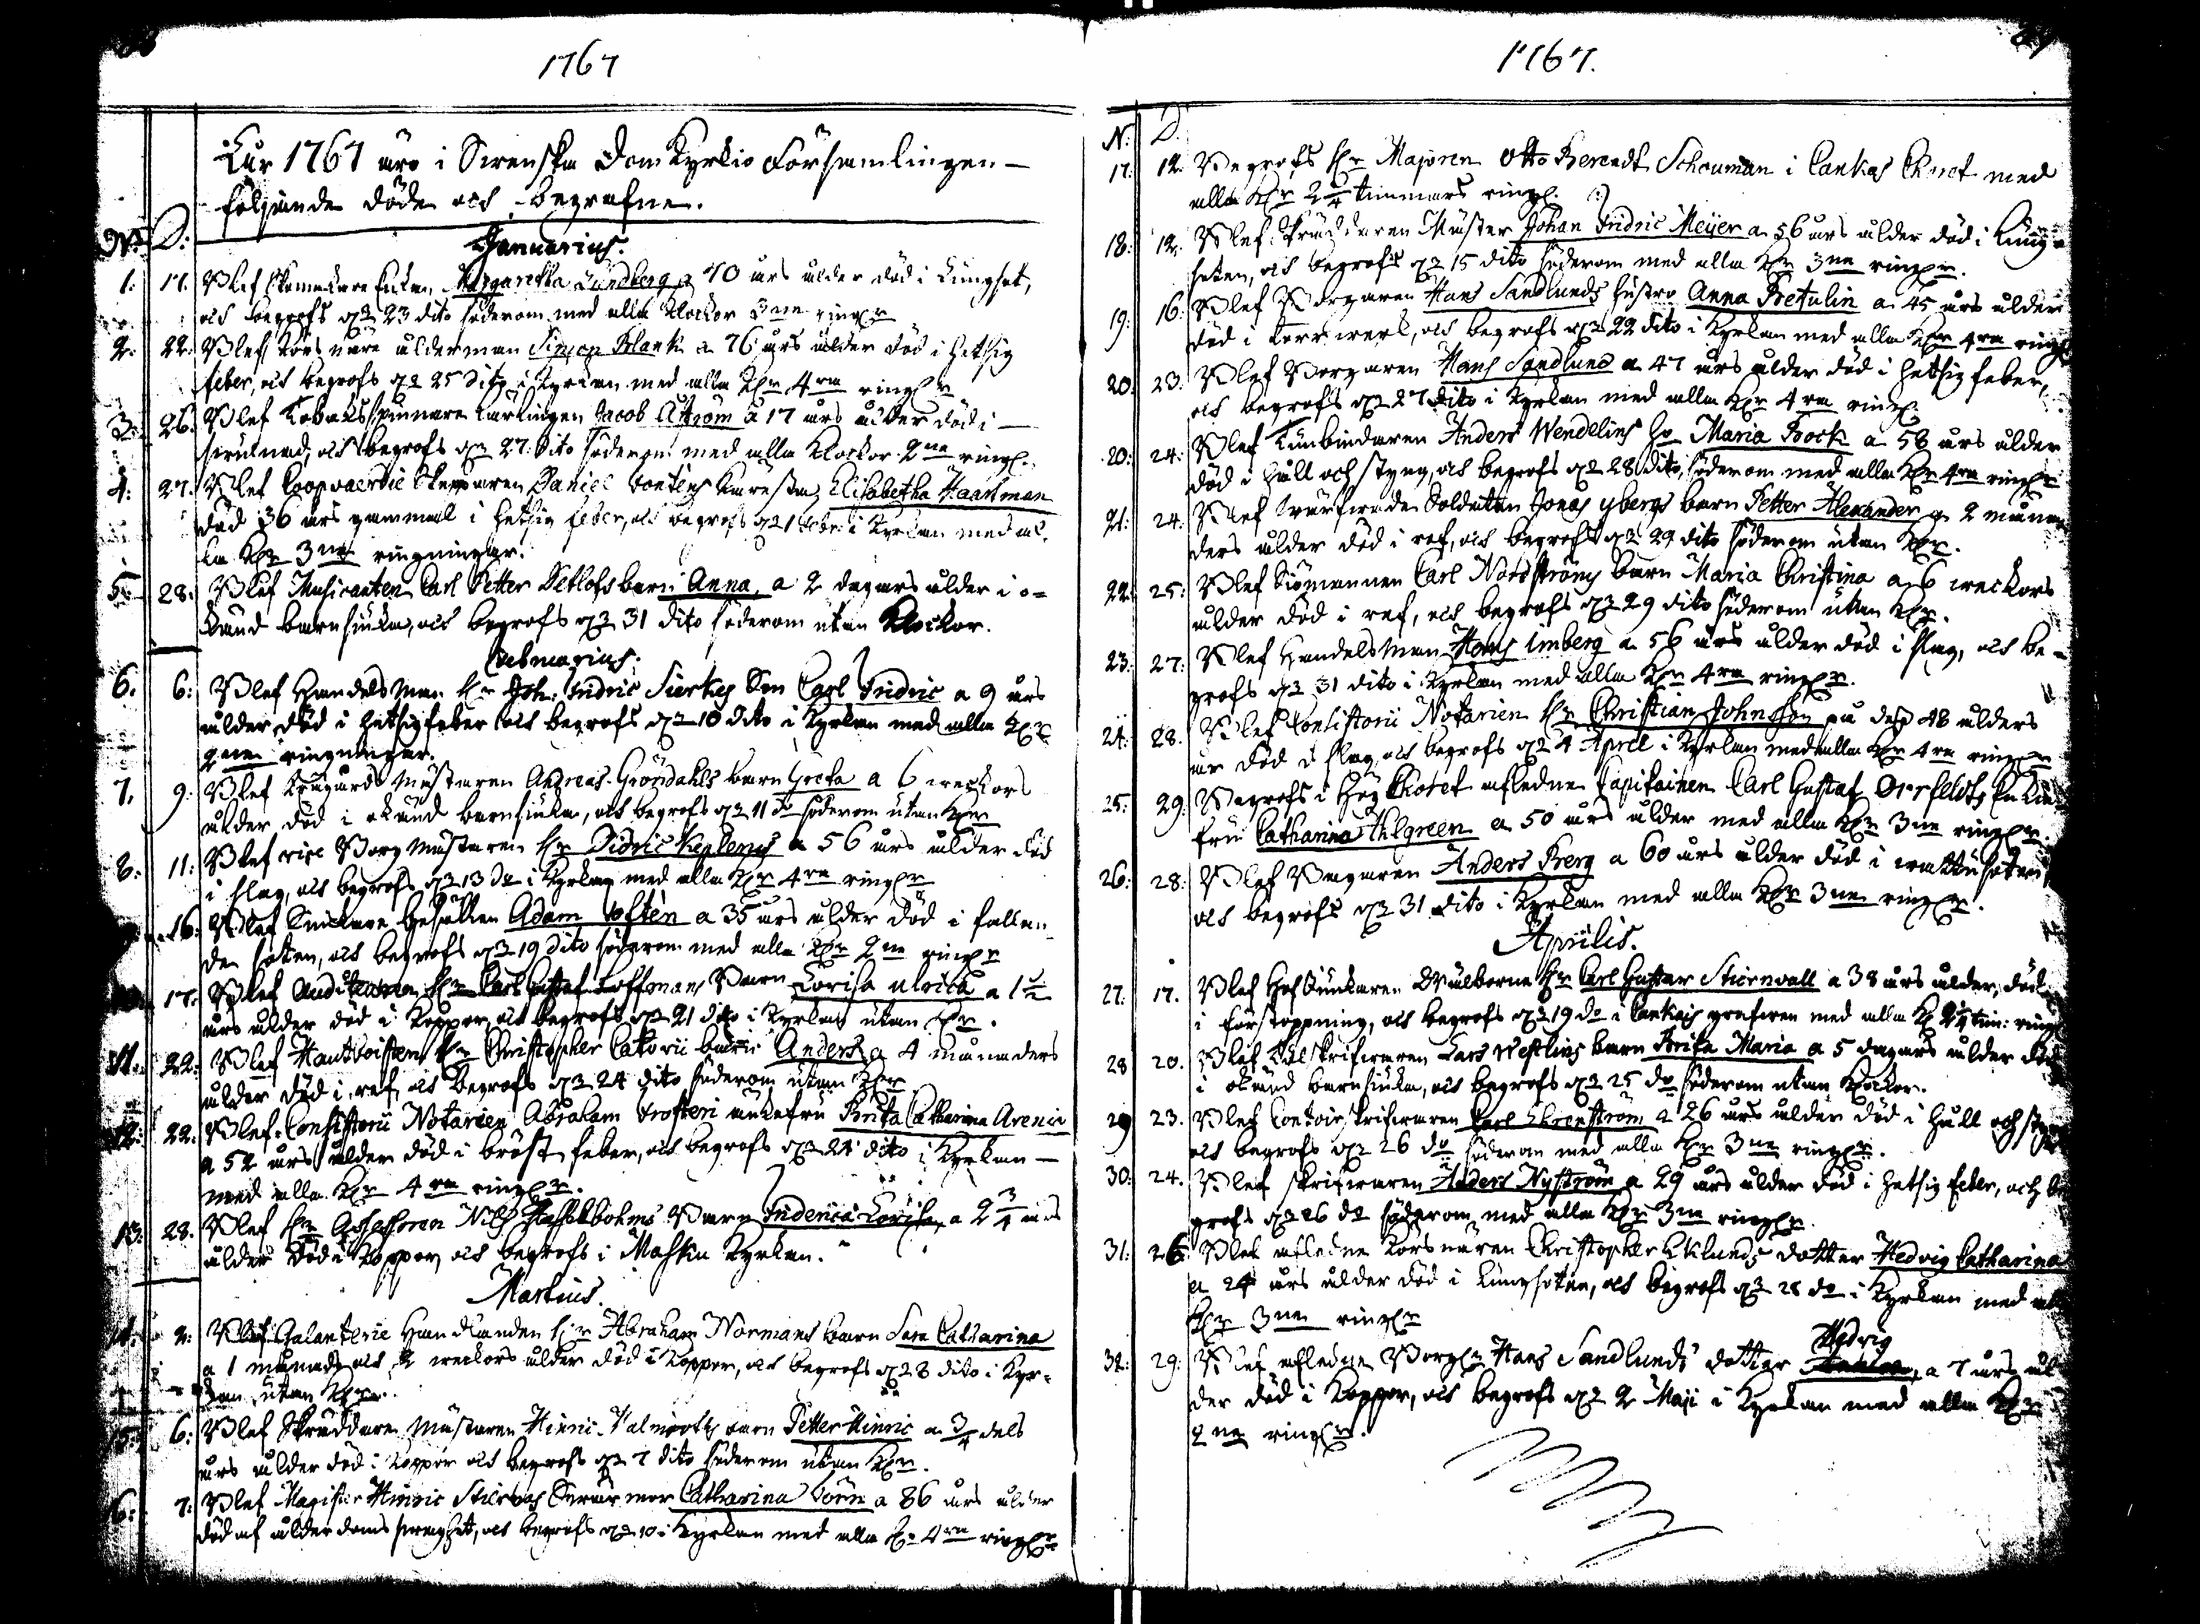 1767
Åhr 1767 äro i Swenska Dom Kyrkio Församlingen
följande döde och begrafne.
N: D:
Januarius.
1. 17. Blef Skomakare Enkan Margaretha Lundberg a 70 års ålder död i Lungsot,
och begrofs d 23 dito söderom med alla Klockor 3ne ring:r
2. 22. Blef Körsnäre ålderman Simon Blank a 76 års ålder död i hetsig
feber, och begrofs d 25 dito i Kyrkan med alla Kl:r 4ra ring:r
3. 26. Blef Tobaksspinnare Lärlingen Jacob Åström a 17 års ålder död i
och begrofs d 27 dito söderom med alla Klockor 2ne ring:
4. 27. Blef Coopvaerdie Skepparen Daniel Elisabetha Haartman
död 36 års gammal i hetsig feber, och begrofs d 1 i Kyrkan med al-
la Kl:r 3ne ringningar.
5. 28. Blef Musicanten Carl Petter Detlofs barn Anna, a 2 dagars ålder i o-
känd barnsiuka, och begrofs d 31 dito söderom utan Klockor.
Februarius.
6. 6. Blef Handelsman H:r Joh: Fridric Sierkes Son Carl Fridric a 9 års
ålder död i hetsig feber och begrofs d 10 dito i Kyrkan med alla Kl:r
2ne ringningar.
7. 9. Blef Mästaren Andreas Gröndahls barn Greta a 6 weckors
ålder död i okänd barnsiuka, och begrofs d 11 do söderom utan Kl:r
8. 11. Blef vice Borgmästaren H:r Didric Keplerus a 56 års ålder död
i slag, och begrofs d 13 do i Kyrkan med alla Kl:r 4ra ring:r
16. Blef Snickare Gesällen Adam Toftén a 35 års ålder död i fallan-
de soten, och begrofs d 19 dito söderom med alla Kl:r 2ne ring:r
17. Blef Auditeuren H:r Carl Gustaf Hoffmans Barn Lovisa Ulrica a 1½
års ålder död i Koppor, och begrofs d 21 dito i Kyrkan utan Kl:r.
11. 22. Blef Hautboisten H:r Christopher Catorii barn Anders a 4 månaders
ålder död i ref, och begrofs d 24 dito söderom utan Kl:r
12. 22. Blef Consistorii Notarien Abraham enkefru Brita Catharina Arenia
a 52 års ålder död i bröst feber, och begrofs d 24 dito i Kyrkan
med alla Kl:r 4ra ring:r.
13. 28. Blef H:r Assessoren Nils Hasselbohms Barn Friderica Lovisa, a 2¾ års
ålder död i Koppor och begrofs i Masku Kyrkan.
Martius.
14. 2. Blef Galanterie Handlanden H:r Abraham Normans barn Sara Catharina
a 1 månads och 2 weckors ålder död i Koppor, och begrofs d 8 dito i Kyr-
kan utan Kl:r.
15. 6. Blef Skräddare Mästaren Hinric barn Petter Hinric a ¾ dels
års ålder död i Koppor och begrofs d 7 dito söderom utan Kl:r.
6. 7. Blef Magister Hinric Stiernas Swärmor Catharina a 86 års ålder
död af ålderdoms swaghet, och begrofs d 10 i Kyrkan med alla Kl:r 4ra ring:r
1767.
N: D:
17. 12. Begrofs H:r Majoren Otto Berendt Schouman i Tankas Choret med
alla Kl:r 2¼ timmars ring:
18. 12. Blef Skräddaren Mäster Johan Fridric Meijer a 56 års ålder död i Lung-
soten, och begrofs d 15 dito söderom med alla Kl:r 3ne ring:r.
19. 16. Blef Borgaren Hans Sandlunds hustro Anna Betulin a 45 års ålder
död i och begrofs d 22 dito i Kyrkan med alla Kl:r 4ra ring:r
20. 23. Blef Borgaren Hans Sandlund a 47 års ålder död i hetsig feber,
och begrofs d 27 dito i Kyrkan med alla Kl:r 4ra ring:
20. 24. Blef Anders Wendelins Maria Bock a 58 års ålder
död i håll och styng, och begrofs d 28 dito, söderom med alla Kl:r 4ra ring:r
21. 24. Blef wärfwade Soldaten Jonas ybergs barn Petter Alexander a 2 måna-
ders ålder död i ref, och begrofs d 29 dito söderom utan Kl:r.
22. 25. Blef Siömannen Carl Nordströms barn Maria Christina a 6 weckors
ålder död i ref, och begrofs d 29 dito söderom utan Kl:r.
23. 27. Blef Handelsman Hans Imberg a 56 års ålder död i slag, och be-
grofs d 31 dito i Kyrkan med alla Kl:r 4ra ring:r.
24. 28. Blef Consistorii Notarien H:r Christian Johnsson på dess 48 ålders
år död i slag, och begrofs d 4 April i Kyrkan med alla Kl:r 4ra ring:r
25. 29. Begrofs i Hög Choret afledne Capitainen Carl Gustaf Orrfeldts Enke
fru Catharina Ahlgreen a 50 års ålder med alla Kl:r 3ne ring:r.
26. 28. Blef Borgaren Anders Berg a 60 års ålder död i wattusoten
och begrofs d 31 dito i Kyrkan med alla Kl:r 3ne ring:r.
Aprilis.
27. 17. Blef HofJunkaren Wälborne H:r Carl Gustav Stiernvall a 38 års ålder, död
i förstoppning, och begrofs d 19 do i Tankas grafwen med alla Kl: 2¼ tim: ring:
28 20. Blef skrifwaren Lars Westlins barn Brita Maria a 5 dagars ålder död
i okänd barnsiuka, och begrofs d 25 do söderom utan Klockor.
29 23. Blef Contoir skrifwaren Carl Ekenström a 26 års ålder död i Håll och styng
och begrofs d 26 do söderom med alla Kl:r 3ne ring:r.
30. 24. Blef skrifwaren Anders Nyström a 29 års ålder död i hetsig feber, och be-
grofs d 26 do söderom med alla Kl:r 3ne ring:r.
31. 26. Blef afledne Korsnären Christopher Eklunds dotter Hedvig Catharina
a 24 års ålder död i Lungsoten, och begrofs d 28 do i Kyrkan med alla
Kl:r 3ne ring:r
Hedvig
32. 29. Blef afledne Borg:n Hans Sandlunds dotter, a 7 års ål
der död i Koppor, och begrofs d 2 Maji i Kyrkan med alla Kl:r
2ne ring:r.